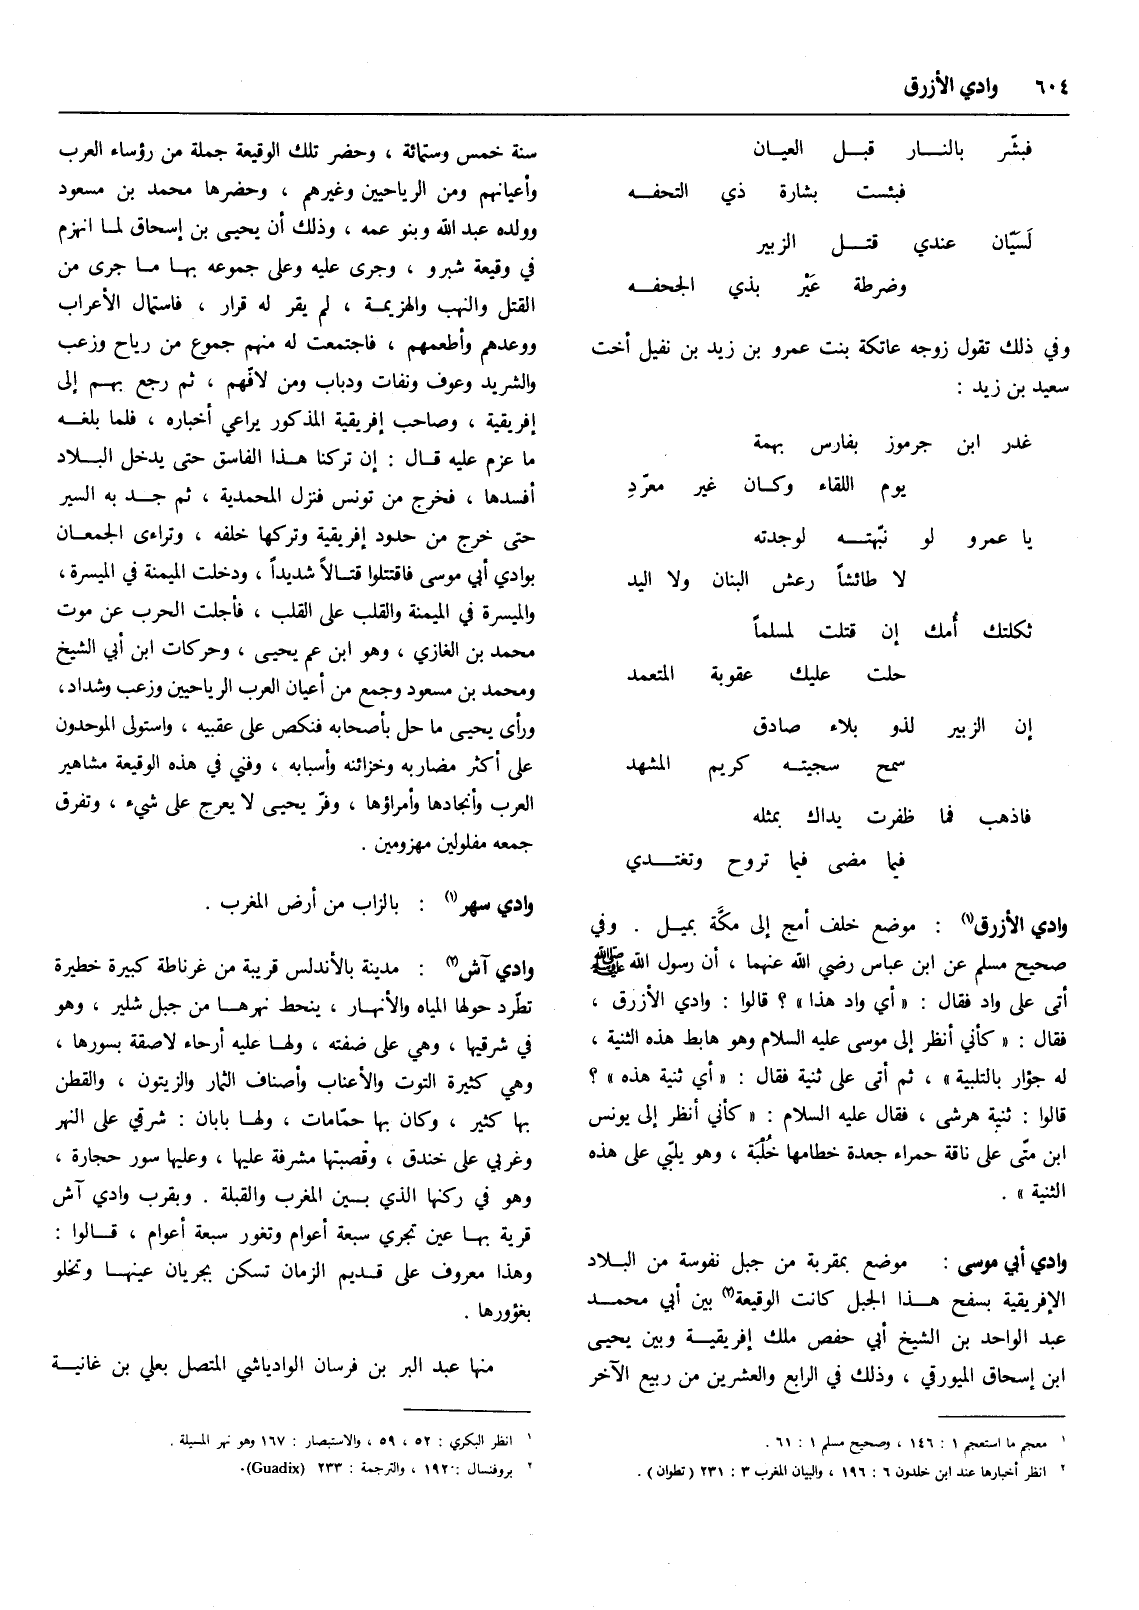 ٦٠٤ وادي الأزرق
فبشّر بالنار قبل العيان
فبئست بشارة ذي التحفه
لَسَيّان عندي قتل الزبير
وضرطة عَيْر بذي الجحفه
وفي ذلك تقول زوجه عاتكة بنت عمرو بن زيد بن نفيل أخت
سعيد بن زيد :
غدر ابن جرموز بفارس بهمة
يوم اللقاء وكان غير معرّدِ
يا عمرو لو نبّهته لوجدته
لا طائشاً رعش البنان ولا اليد
ثكلتك أُمك إن قتلت لمسلماً
حلت عليك عقوبة المتعمد
إن الزبير لذو بلاء صادق
سمح سجيته كريم المشهد
فاذهب فما ظفرت يداك بمثله
فيما مضى فيما تروح وتغتدي
وادي الأزرق(١) : موضع خلف أمج إلى مكَّة بميل . وفي
صحيح مسلم عن ابن عباس رضي الله عنهما ، أن رسول الله ﷺ
أتى على واد فقال : « أي واد هذا » ؟ قالوا : وادي الأزرق ،
فقال : « كأني أنظر إلى موسى عليه السلام وهو هابط هذه الثنية ،
له جؤار بالتلبية » ، ثم أتى على ثنية فقال : « أي ثنية هذه » ؟
قالوا : ثنية هرشى ، فقال عليه السلام : « كأني أنظر إلى يونس
ابن متّى على ناقة حمراء جعدة خطامها خُلْبَة ، وهو يلبّي على هذه
الثنية » .
وادي أبي موسى : موضع بمقربة من جبل نفوسة من البلاد
الإفريقية بسفح هذا الجبل كانت الوقيعة(٢) بين أبي محمد
عبد الواحد بن الشيخ أبي حفص ملك إفريقية وبين يحيى
ابن إسحاق الميورقي ، وذلك في الرابع والعشرين من ربيع الآخر
١ معجم ما استعجم ١ : ١٤٦ ، وصحيح مسلم ١ : ٦١ .
٢ انظر أخبارها عند ابن خلدون ٦ : ١٩٦ ، والبيان المغرب ٣ : ٢٣١ ( تطوان ) .
سنة خمس وستمائة ، وحضر تلك الوقيعة جملة من رؤساء العرب
وأعيانهم ومن الرياحيين وغيرهم ، وحضرها محمد بن مسعود
وولده عبد الله وبنو عمه ، وذلك أن يحيى بن إسحاق لما انهزم
في وقيعة شبرو ، وجرى عليه وعلى جموعه بها ما جرى من
القتل والنهب والهزيمة ، لم يقر له قرار ، فاستمال الأعراب
ووعدهم وأطعمهم ، فاجتمعت له منهم جموع من رياح وزعب
والشريد وعوف ونفات ودباب ومن لافّهم ، ثم رجع بهم إلى
إفريقية ، وصاحب إفريقية المذكور يراعي أخباره ، فلما بلغه
ما عزم عليه قال : إن تركنا هذا الفاسق حتى يدخل البلاد
أفسدها ، فخرج من تونس فنزل المحمدية ، ثم جد به السير
حتى خرج من حدود إفريقية وتركها خلفه ، وتراءى الجمعان
بوادي أبي موسى فاقتتلوا قتالاً شديداً ، ودخلت الميمنة في الميسرة ،
والميسرة في الميمنة والقلب على القلب ، فأجلت الحرب عن موت
محمد بن الغازي ، وهو ابن عم يحيى ، وحركات ابن أبي الشيخ
ومحمد بن مسعود وجمع من أعيان العرب الرياحيين وزعب وشداد،
ورأى يحيى ما حل بأصحابه فنكص على عقبيه ، واستولى الموحدون
على أكثر مضاربه وخزائنه وأسبابه ، وفني في هذه الوقيعة مشاهير
العرب وأنجادها وأمراؤها ، وفرّ يحيى لا يعرج على شيء ، وتفرق
جمعه مفلولين مهزومين .
وادي سهر(١) : بالزاب من أرض المغرب .
وادي آش(٢) : مدينة بالأندلس قريبة من غرناطة كبيرة خطيرة
تطّرد حولها المياه والأنهار ، ينحط نهرها من جبل شلير ، وهو
في شرقيها ، وهي على ضفته ، ولها عليه أرحاء لاصقة بسورها ،
وهي كثيرة التوت والأعناب وأصناف الثمار والزيتون ، والقطن
بها كثير ، وكان بها حمّامات ، ولها بابان : شرقي على النهر
وغربي على خندق ، وقصبتها مشرفة عليها ، وعليها سور حجارة ،
وهو في ركنها الذي بين المغرب والقبلة . وبقرب وادي آش
قرية بها عين تجري سبعة أعوام وتغور سبعة أعوام ، قالوا :
وهذا معروف على قديم الزمان تسكن بجريان عينها وتخلو
بغؤورها .
منها عبد البر بن فرسان الوادياشي المتصل بعلي بن غانية
١ انظر البكري : ٥٢ ، ٥٩ ، والاستبصار : ١٦٧ وهو نهر المسيلة .
٢ بروفنسال : ١٩٢ ، والترجمة : ٢٣٣ (Guadix).